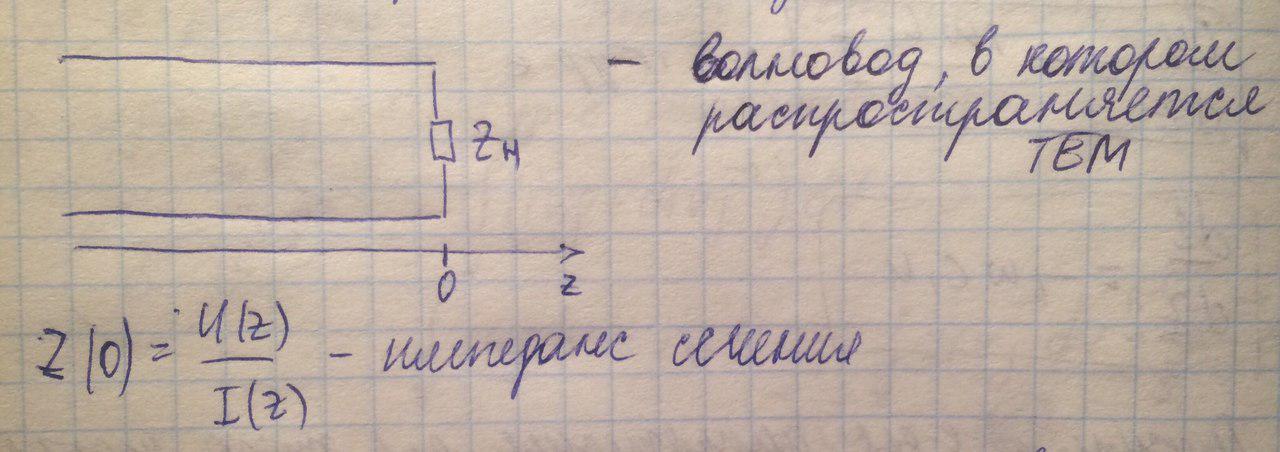 – волновод, в котором
распространяется
TEM
Zн
0 z
Z(0) = U(z) / I(z) – импеданс сечения